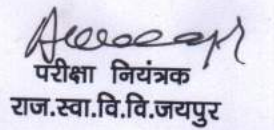 परीक्षा नियंत्रक
राज.स्वा.वि.वि.जयपुर